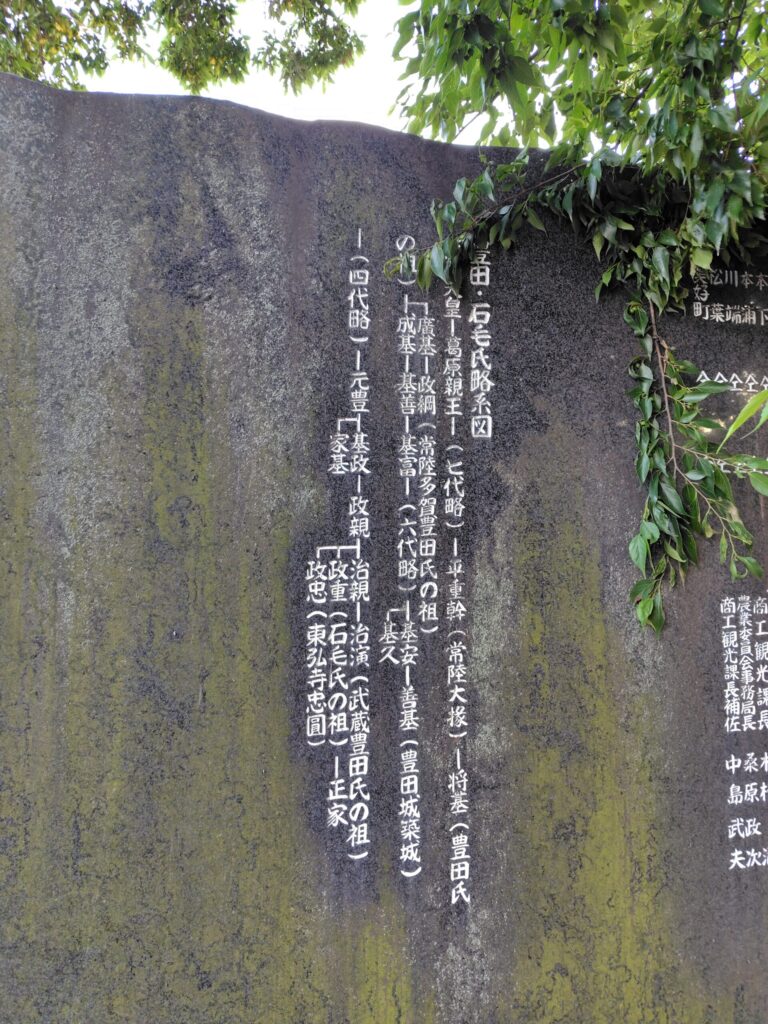 松川本本
美好町 葉端浦下
商工観光課長
農業委員会事務局長 桑原政次
商工観光課長補佐 中島武夫
豊田・石毛氏略系図
皇ー葛原親王ー(七代略)ー平重幹(常陸大掾)ー将基(豊田氏
の祖)
廣基ー政綱(常陸多賀豊田氏の祖)
成基ー基善ー基富ー(六代略)ー基安ー善基(豊田城築城)
基久
ー(四代略)ー元豊
基政ー政親
治親ー治演(武蔵豊田氏の祖)
家基
政重(石毛氏の祖)ー正家
政忠(東弘寺忠圓)